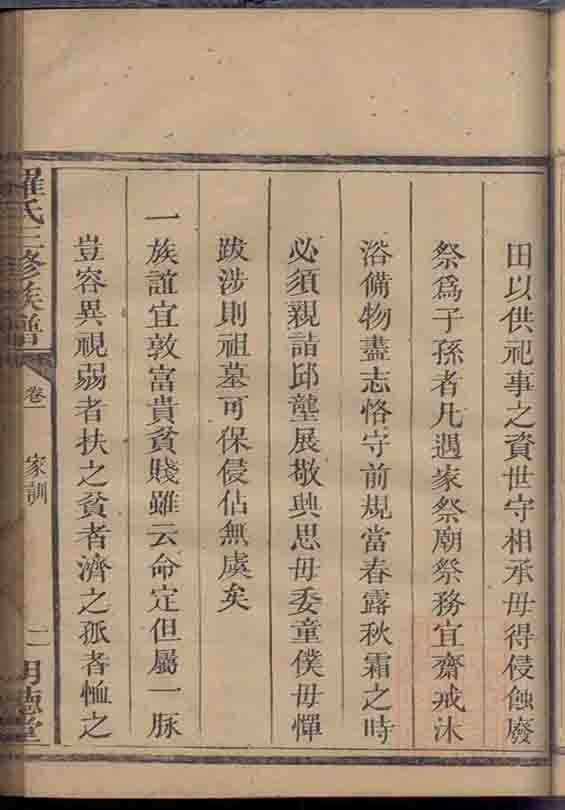 田以供祀事之資世守相承毋得侵蝕廢
祭爲子孫者凡遇家祭廟祭務宜齋戒沐
浴備物盡志恪守前規當春露秋霜之時
必須親詣邱壟展敬興思毋委童僕毋憚
跋涉則祖墓可保侵佔無虞矣
一族誼宜敦富貴貧賤雖云命定但屬一脉
豈容異視弱者扶之貧者濟之孤者恤之
羅氏三修族譜
卷一
家訓
二
明德堂